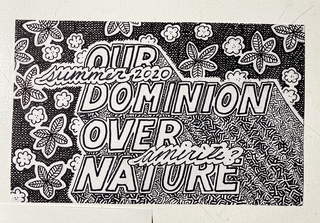 OUR
summer 2020
DOMINION
OVER
amirite
NATURE